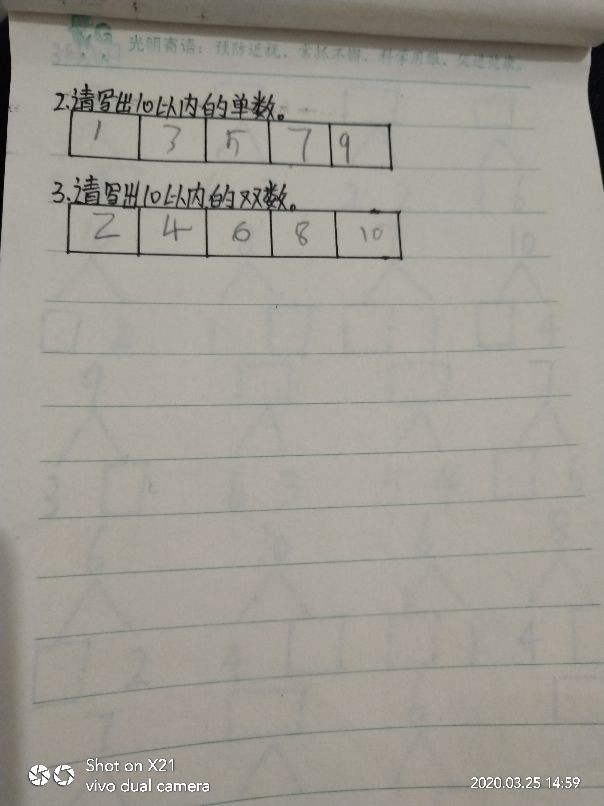 光明寄语：预防近视、常抓不懈、科学用眼、促进健康。
2.请写出10以内的单数。
1 3 5 7 9
3.请写出10以内的双数。
2 4 6 8 10
Shot on X21
vivo dual camera
2020.03.25 14:59